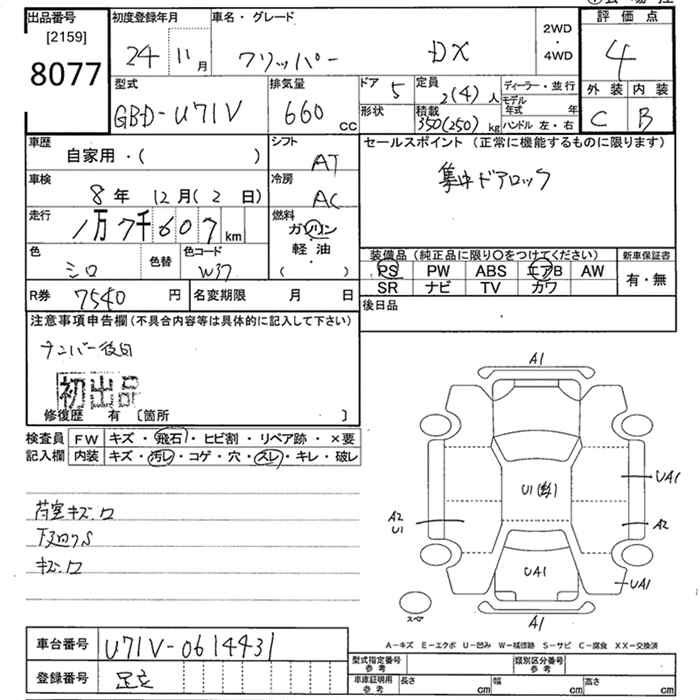 出品番号 [2159] 8077
初度登録年月 24 11月
車名・グレード クリッパー DX
2WD・4WD
評価点 4
型式 GBD-U71V
排気量 660 cc
ドア 5
形状
定員 2(4)人
積載 350(250)kg
ディーラー・並行
モデル年式 年
ハンドル 左・右
外装 C
内装 B
車歴 自家用・( )
シフト AT
セールスポイント(正常に機能するものに限ります)
集中ドアロック
車検 8年 12月(2日)
冷房 AC
走行 1万7千607km
燃料 ガソリン・軽油 ( )
色 シロ
色替
色コード W37
装備品(純正品に限り〇をつけてください)
PS PW ABS エアB AW
SR ナビ TV カワ
新車保証書 有・無
R券 7540円
名変期限 月 日
後日品
注意事項申告欄(不具合内容等は具体的に記入して下さい)
ナンバー後日
初出品
修復歴 有 〔箇所 〕
検査員記入欄
FW キズ・飛石・ヒビ割・リペア跡・×要
内装 キズ・汚レ・コゲ・穴・スレ・キレ・破レ
荷室キズ、ワ
下廻りS
キズ、ワ
A1
UA1
U1
A2
U1
A2
UA1
UA1
A1
スペア
A-キズ E-エクボ U-凹み W-補修跡 S-サビ C-腐食 XX-交換済
車台番号 U71V-0614431
登録番号 足立
型式指定番号 参考
類別区分番号 参考
車庫証明用 参考
長さ cm
幅 cm
高さ cm